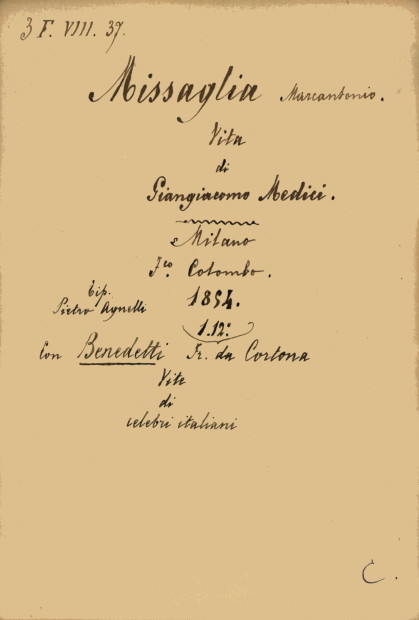 3 F. VIII. 37.
Missaglia Marcantonio.
Vita
di
Giangiacomo Medici.
Milano
Fco. Colombo.
Tip.
Pietro Agnelli
1854.
1.12:
Con Benedetti Fr. da Cortona
Vite
di
celebri italiani
C.